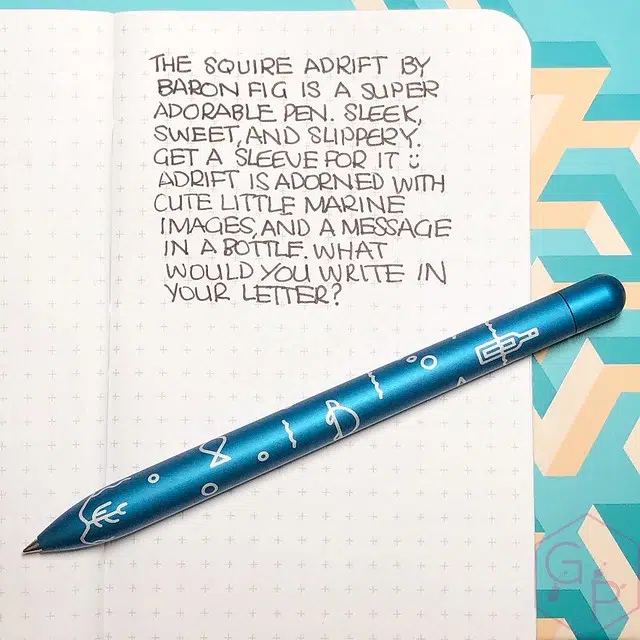 THE SQUIRE ADRIFT BY
BARON FIG IS A SUPER
ADORABLE PEN. SLEEK,
SWEET, AND SLIPPERY.
GET A SLEEVE FOR IT :)
ADRIFT IS ADORNED WITH
CUTE LITTLE MARINE
IMAGES, AND A MESSAGE
IN A BOTTLE. WHAT
WOULD YOU WRITE IN
YOUR LETTER?
GP